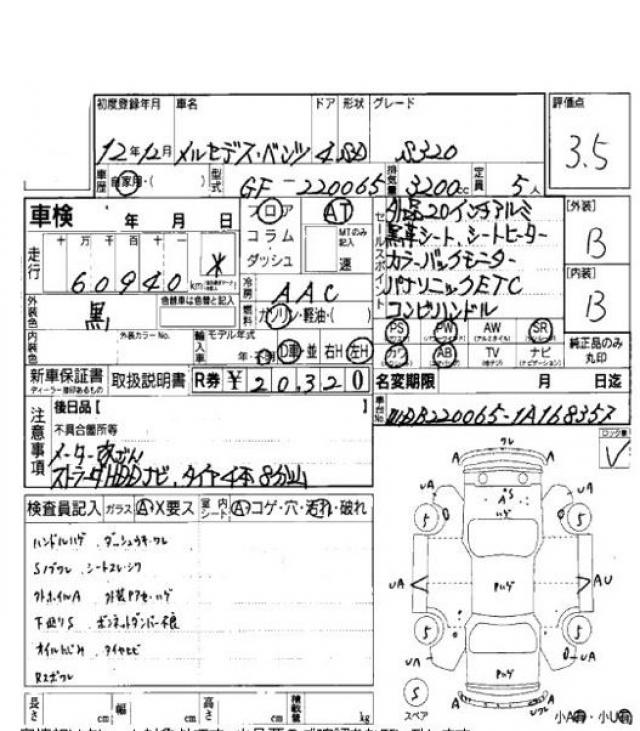 初度登録年月 車名 ドア 形状 グレード 評価点
12年12月 メルセデス・ベンツ 4 SD S320 3.5
車歴 自家用・( ) 型式 GF-220065 排気量 3200cc 定員 5人
車検 年 月 日 フロア AT セールスポイント 外品20インチアルミ [外装]
コラム MTのみ記入 黒革シート、シートヒーター B
走行 十 万 千 百 十 一 ダッシュ 速 カラーバックモニター
60940 km * 冷房 AAC パナソニックETC [内装]
外装色 黒 色替車は色替と記入 燃料 ガソリン・軽油・( ) コンビハンドル B
PS PW AW SR 純正品のみ丸印
内装色 外装カラーNo. 輸入車 モデル年式 年・ D車・並 右H・左H カワ AB TV ナビ
新車保証書 取扱説明書 R券 ¥ 20,320 名変期限 月 日迄
ディーラー捺印あるもの
注意事項 後日品[ ] 車台No. WDB220065-1A168357
不具合箇所等
メーター改ざん
ストラーダHDDナビ、タイヤ4本8分山
検査員記入 ガラス A・X要ス 室内シート A・コゲ・穴・汚れ・破れ
ハンドルハゲ
Sノブワレ シートスレ・シワ
下廻りS ボンネットダンパー不良
オイルにじみ
ワレ
A A
S
A ハゲ
UA UA
5 5
UA AU
Pハゲ
5 5
UA UA
Pハゲ
S
スペア
長さ cm 幅 cm 高さ cm 積載量 kg 小A有・小U有